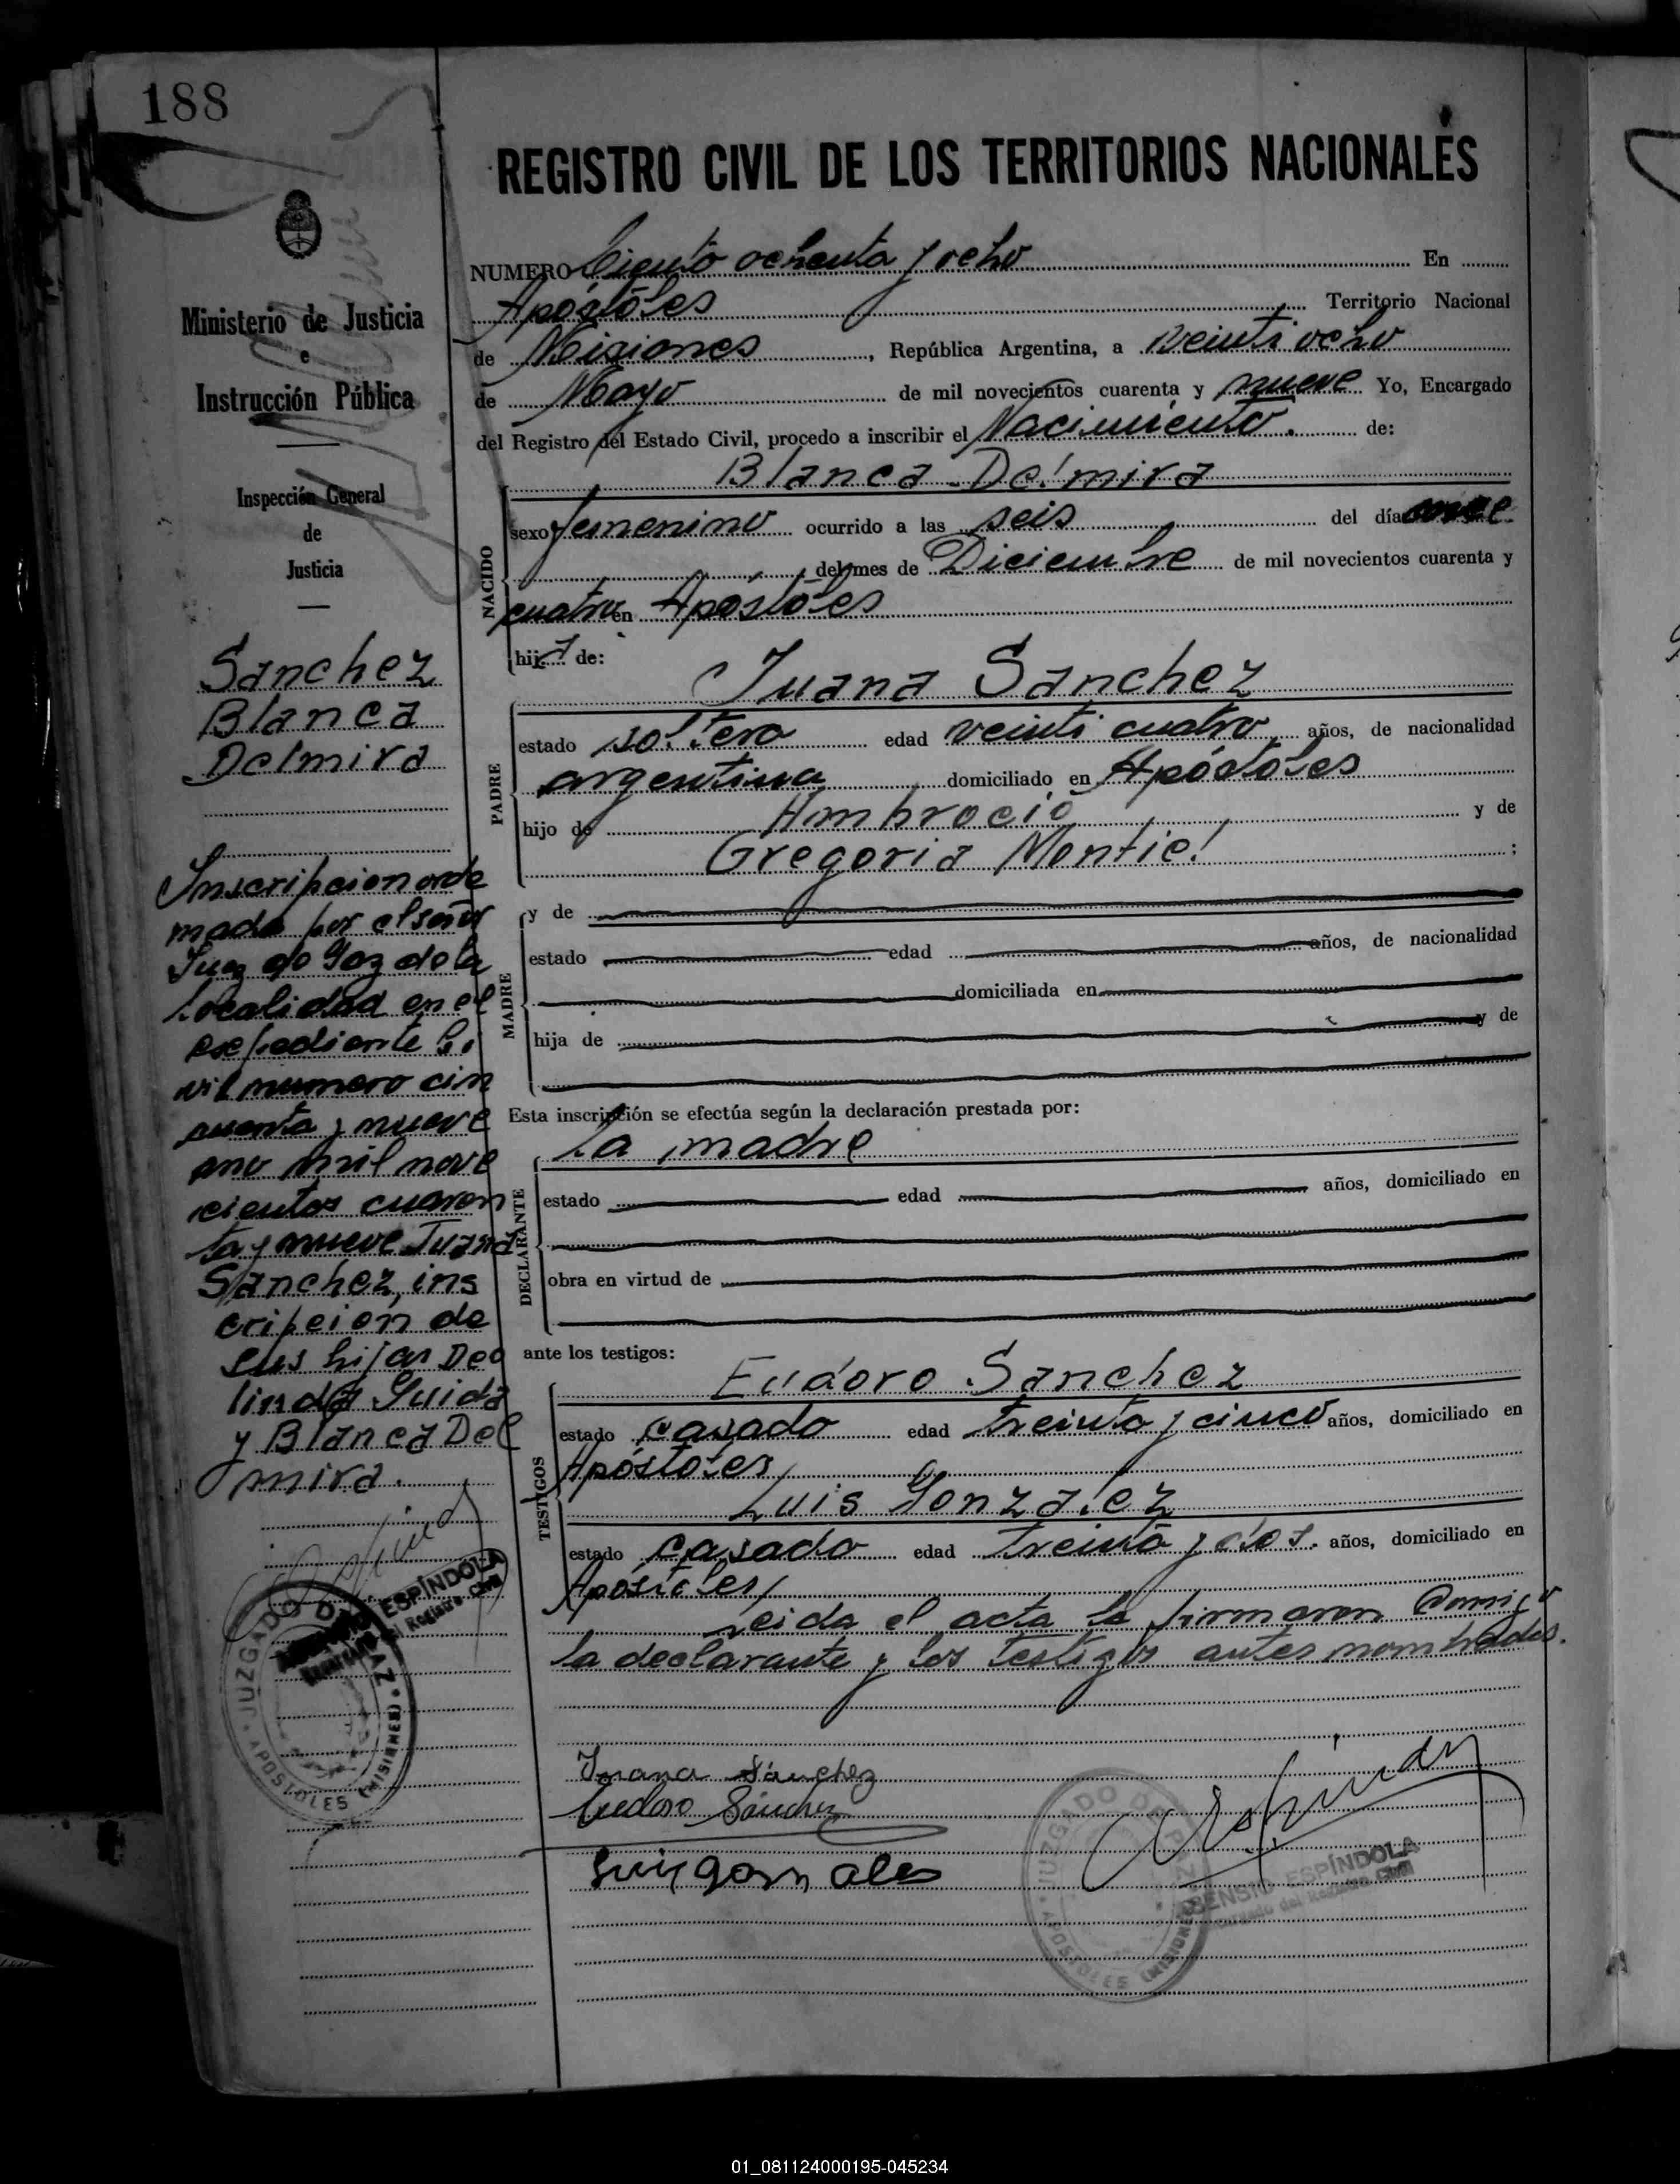 188
REGISTRO CIVIL DE LOS TERRITORIOS NACIONALES
Ministerio de Justicia
e
Instrucción Pública
Inspección General
de
Justicia
Sanchez
Blanca
Delmira
Inscripcion orde
nada por el señor
Juez de Paz de la
localidad en el
expediente Ci
vil numero cin
cuenta y nueve
ano mil nove
cientos cuaren
ta y nueve Juana
Sanchez, ins
cripcion de
sus hijas Deo
linda Guida
y Blanca Del
mira.
NUMERO Ciento ochenta y ocho En
Apóstoles Territorio Nacional
de Misiones, República Argentina, a veinti ocho
de Mayo de mil novecientos cuarenta y nueve Yo, Encargado
del Registro del Estado Civil, procedo a inscribir el Nacimiento. de:
Blanca Delmira
NACIDO
sexo femenino ocurrido a las seis del día once
del mes de Diciembre de mil novecientos cuarenta y
cuatro en Apóstoles
hija de:
Juana Sanchez
PADRE
estado soltera edad veinti cuatro años, de nacionalidad
argentina domiciliado en Apóstoles
hijo de Ambrocio y de
Gregoria Montiel ;
MADRE
y de
estado edad años, de nacionalidad
domiciliada en
hija de y de
Esta inscripción se efectúa según la declaración prestada por:
la madre
DECLARANTE
estado edad años, domiciliado en
obra en virtud de
ante los testigos:
Eudoro Sanchez
TESTIGOS
estado casado edad treinta y cinco años, domiciliado en
Apóstoles
Luis Gonzalez
estado casado edad treinta y dos. años, domiciliado en
Apóstoles
Leida el acta la firmaron Conmigo
la declarante y los testigos antes nombrados.
Juana Sánchez
Eudoro Sánchez
Luis gonzales
JUZGADO DE PAZ
APOSTOLES (MISIONES)
ESPÍNDOLA
Encargado del Registro Civil
JUZGADO DE PAZ
APOSTOLES (MISIONES)
ESPÍNDOLA
Encargado del Registro Civil
01_081124000195-045234